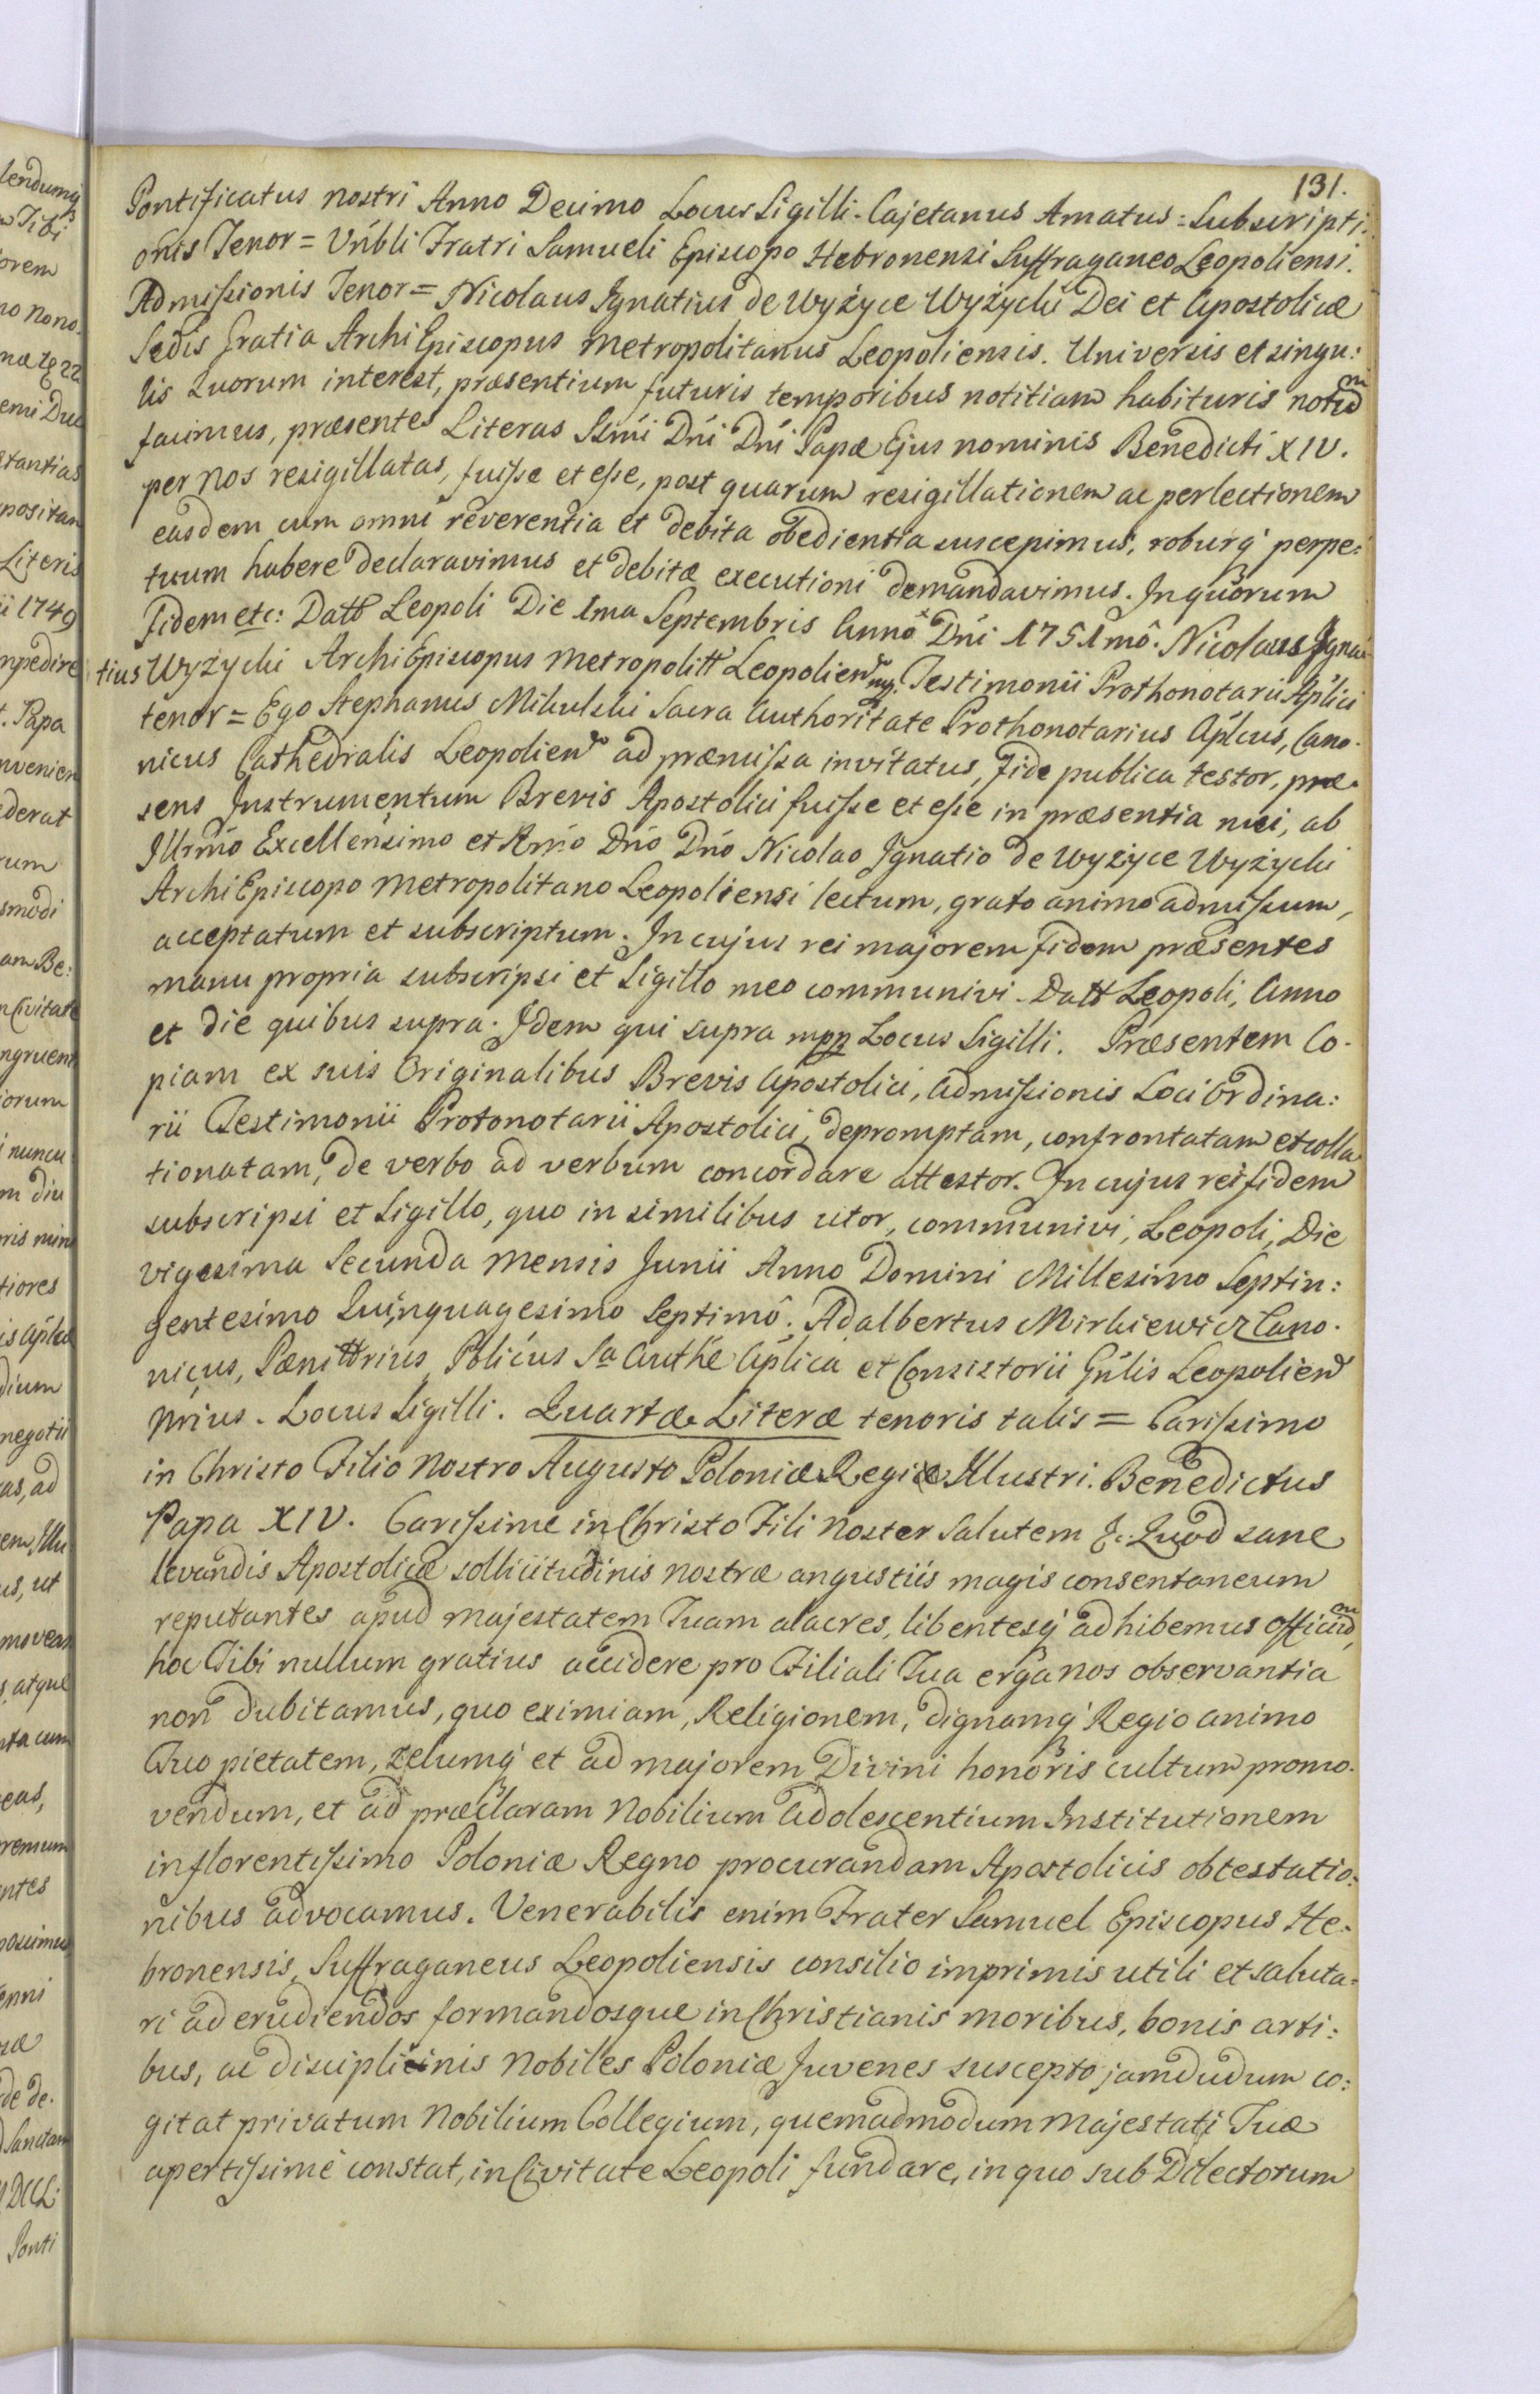 131.
Pontificatus nostri Anno Decimo Locus Sigilli. Cajetanus Amatus = Subscripti:
onis Tenor = Vnbli Fratri Samueli Episcopo Hebronensi Suffraganeo Leopoliensi.
Admißionis Tenor = Nicolaus Ignatius de Wyżyce Wyżycki Dei et Apostolicæ
Sedis Gratia ArchiEpiscopus Metropolitanus Leopoliensis. Universis et singu:
lis Quorum interest, præsentium futuris temporibus notitiam habituris notum
facimus, præsentes Literas Ssmi Dni Dni Papæ Ejus nominis Benedicti XIV.
per Nos resigillatas, fuiße et eße, post quarum resigillationem ac perlectionem
easdem cum omni reverentia et debita obedientia suscepimus, roburq perpe:
tuum habere declaravimus et debitæ executioni demandavimus. In quorum
Fidem etc: Datt Leopoli Die 1ma Septembris Anno Dni 1751mô. Nicolaus Igna
tius Wyżycki ArchiEpiscopus Metropolitt Leopolien mp. Testimonii Prothonotarii Aplici
tenor = Ego Stephanus Mikulski Sacra Authoritate Prothonotarius Aplcus, Cano.
nicus Cathedralis Leopolien ad præmißa invitatus, Fide publica testor, præ.
sens Instrumentum Brevis Apostolici fuiße et eße in præsentia mei, ab
Illrmo Excellensimo et Rmo Dno Dno Nicolao Ignatio de Wyżyce Wyżycki
ArchiEpiscopo Metropolitano Leopoliensi lectum, grato animo admißum,
acceptatum et subscriptum. In cujus rei majorem Fidem præsentes
manu propria subscripsi et Sigillo meo communivi. Datt Leopoli, Anno
et Die quibus supra. Idem qui supra mpp Locus Sigilli. Præsentem Co.
piam ex suis Originalibus Brevis Apostolici, Admißionis Loci Ordina:
rii Testimonii Protonotarii Apostolici, depromptam, confrontatam et colla
tionatam, de verbo ad verbum concordare attestor. In cujus rei fidem
subscripsi et Sigillo, quo in similibus utor, communivi, Leopoli, Die
vigesima Secunda Mensis Junii Anno Domini Millesimo Septin:
gentesimo Quinquagesimo Septimô. Adalbertus Mirkiewicz Cano.
nicus, Pænittrius, Policus Sa Authe Aplica et Consistorii Gnlis Leopolien
Nrius. Locus Sigilli. Quartæ Literæ tenoris talis = Carißimo
in Christo Filio Nostro Augusto Poloniæ Regi Illustri. Benedictus
Papa XIV. Carißime in Christo Fili Noster Salutem &. Quod sane
levandis Apostolicæ sollicitudinis nostræ angustiis magis consentaneum
reputantes apud Majestatem Tuam alacres, libentesq adhibemus officium,
hoc Tibi nullum gratius accidere pro Filiali Tua erga nos observantia
non dubitamus, quo eximiam, Religionem, dignamq Regio animo
Tuo pietatem, zelumq et ad majorem Divini honoris cultum promo.
vendum, et ad præclaram Nobilium Adolescentium Institutionem
in florentißimo Poloniæ Regno procurandam Apostolicis obtestatio:
nibus advocamus. Venerabilis enim Frater Samuel Episcopus He.
bronensis, Suffraganeus Leopoliensis consilio imprimis utili et saluta:
ri ad erudiendos formandosque in Christianis moribus, bonis arti:
bus, ac disciplicinis Nobiles Poloniæ Juvenes suscepto jamdudum co:
gitat privatum Nobilium Collegium, quemadmodum Majestati Tuæ
apertißime constat, in Civitate Leopoli fundare, in quo sub Dilectorum